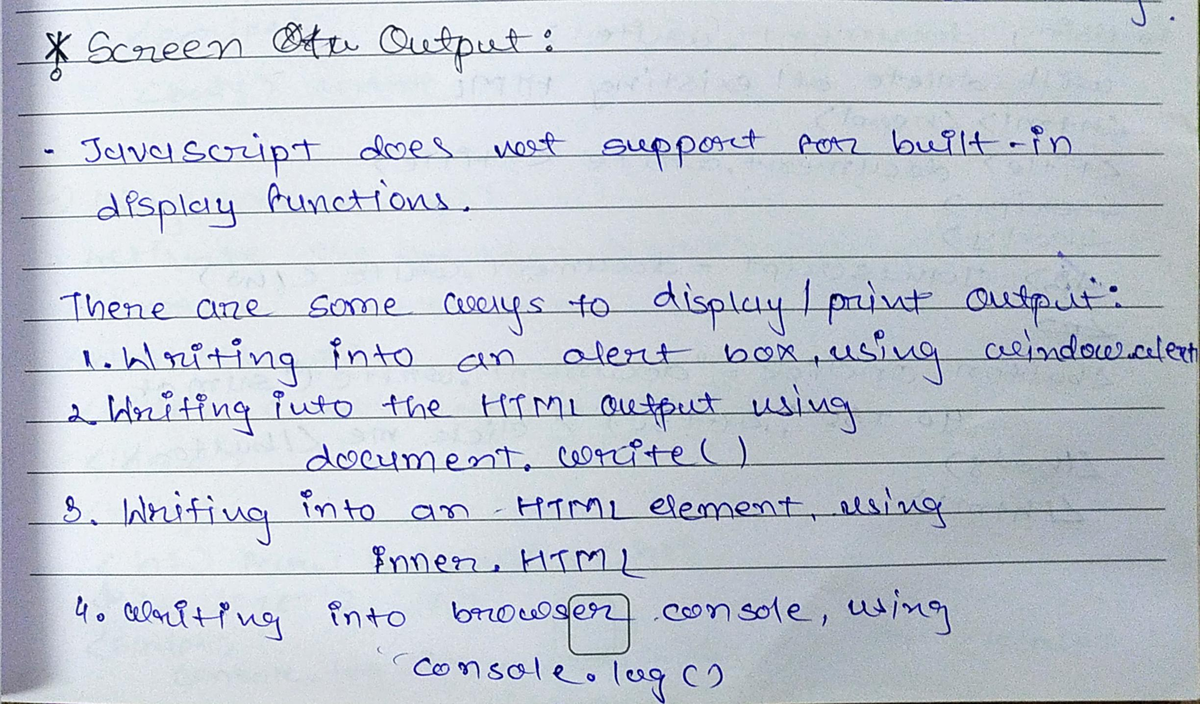 * Screen Output:
- Javascript does not support for built-in
display functions.
There are some ways to display / print output:
1. Writing into an alert box, using window.alert
2 Writing into the HTML output using
document. write()
3. Writing into an HTML element, using
inner. HTML
4. Writing into browser console, using
console.log()